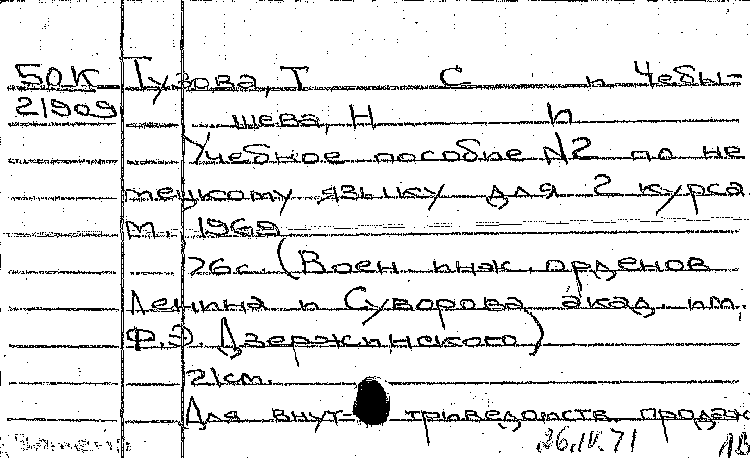 50К Тузова, Т С и Чебы-
21909 шева, Н И
Учебное пособие №2 по не
мецкому языку для 2 курса
М. 1969
76с. (Воен. инж. орденов
Ленина и Суворова акад. им.
Ф.Э. Дзержинского)
21см.
Для внут- триведомств. продаж
26.IV.71 ЛВ